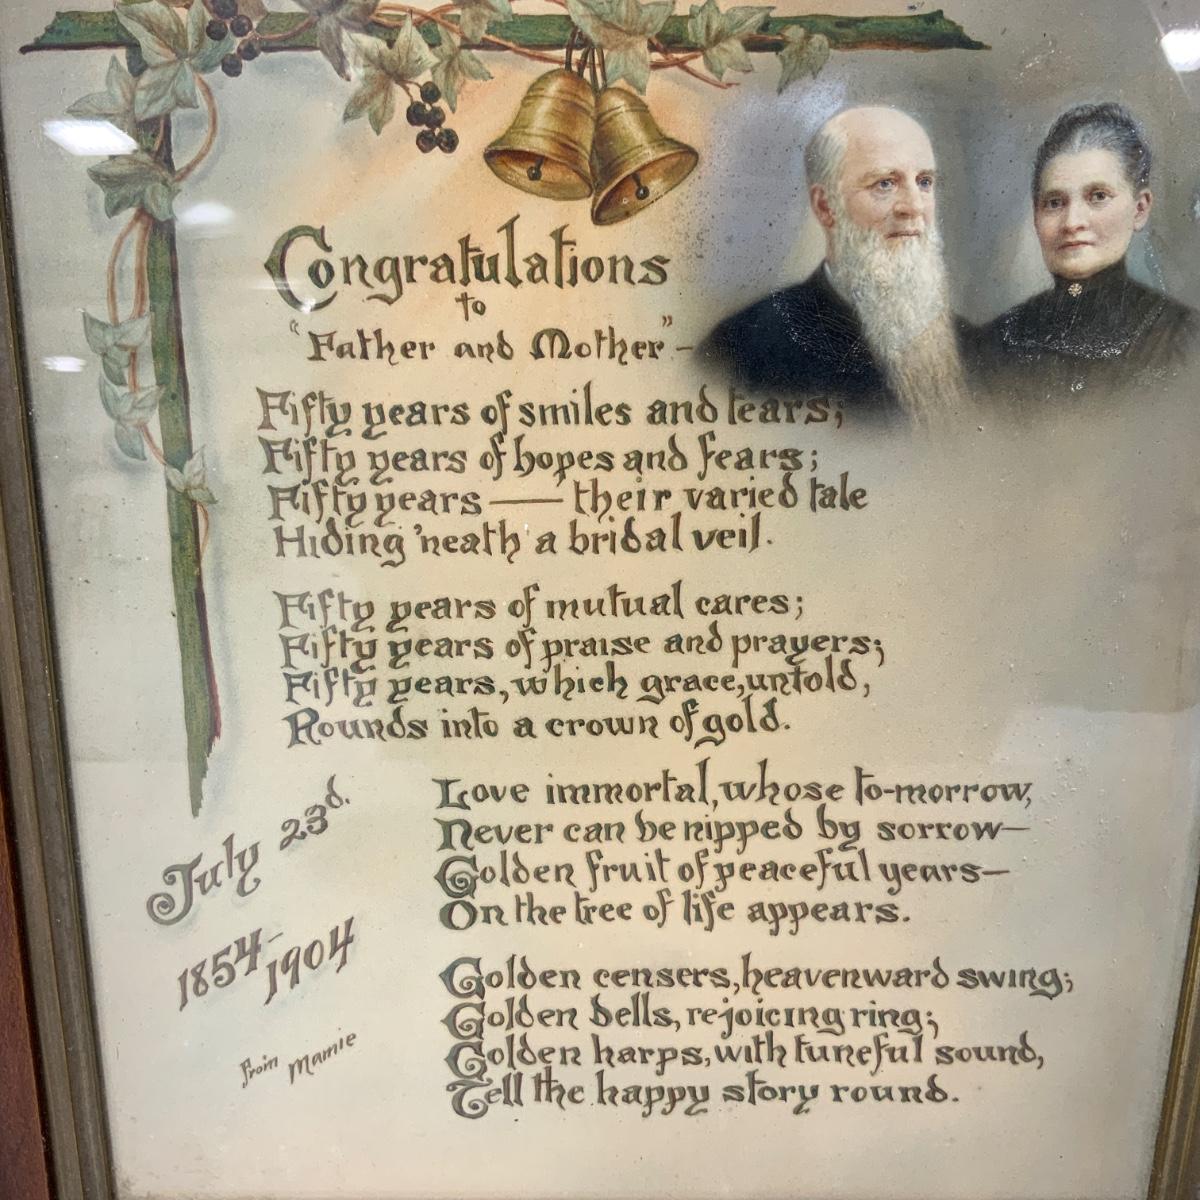 Congratulations
to
"Father and Mother"-
Fifty years of smiles and tears;
Fifty years of hopes and fears;
Fifty years — their varied tale
Hiding 'neath a bridal veil.
Fifty years of mutual cares;
Fifty years of praise and prayers;
Fifty years, which grace, untold,
Rounds into a crown of gold.
Love immortal, whose to-morrow,
Never can be nipped by sorrow—
Golden fruit of peaceful years—
On the tree of life appears.
Golden censers, heavenward swing;
Golden bells, rejoicing ring;
Golden harps, with tuneful sound,
Tell the happy story round.
July 23d.
1854-
1904
from Mamie